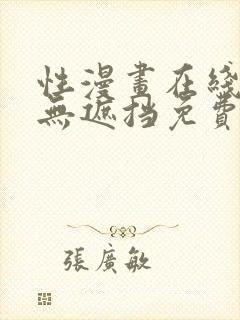 性漫畫在綫
無遮挡免費
張廣敏